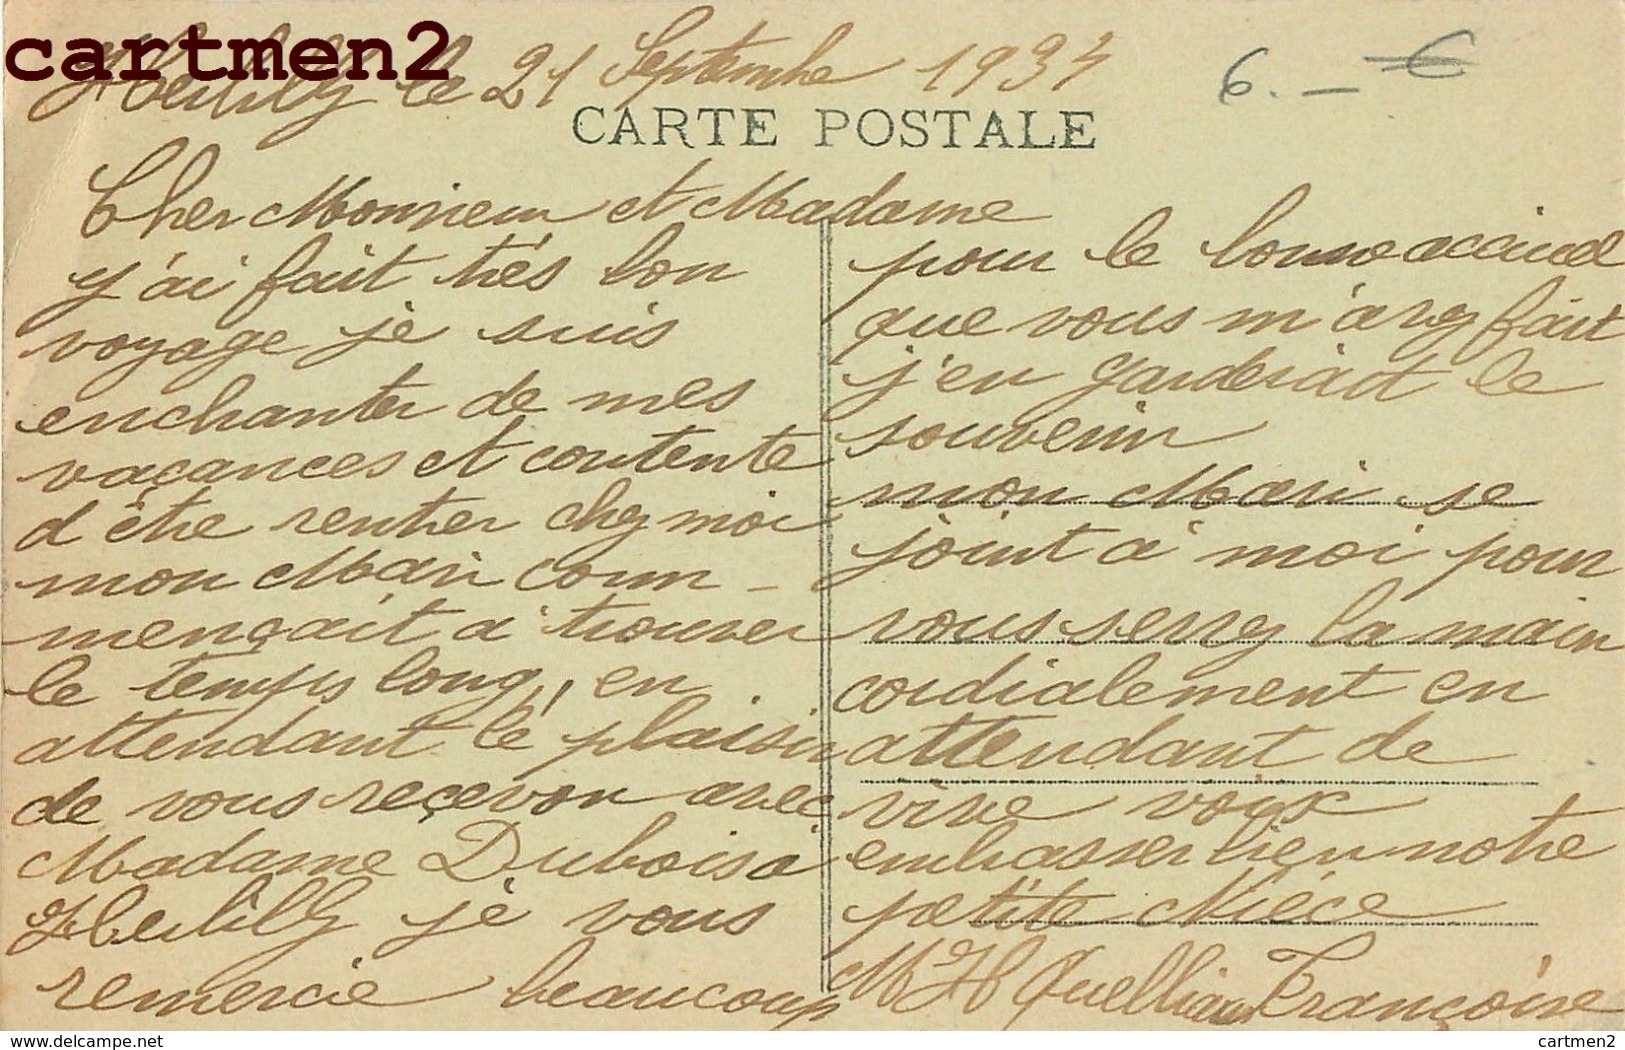 cartmen2
Heulilly le 21 Septembre 1934
6.— €
CARTE POSTALE
Cher Monsieur et Madame
j'ai fait très bon
voyage je suis
enchanter de mes
vaçances et contente
d'être rentrer chez moi
mon Mari com-
mençait a trouver
le temps long, en
attendant le plaisir
de vous reçevoir avec
Madame Dubois à
Heulilly je vous
remercie beaucoup
pour le bonne acceuil
que vous m'avez fait
j'en garderait le
souvenir
mon Mari se
joint à moi pour
vous serrez la main
cordialement en
attendant de
vive voix
embasser bien notre
petite Nièce
M H Quellien Françoise
delcampe.net
cartmen2